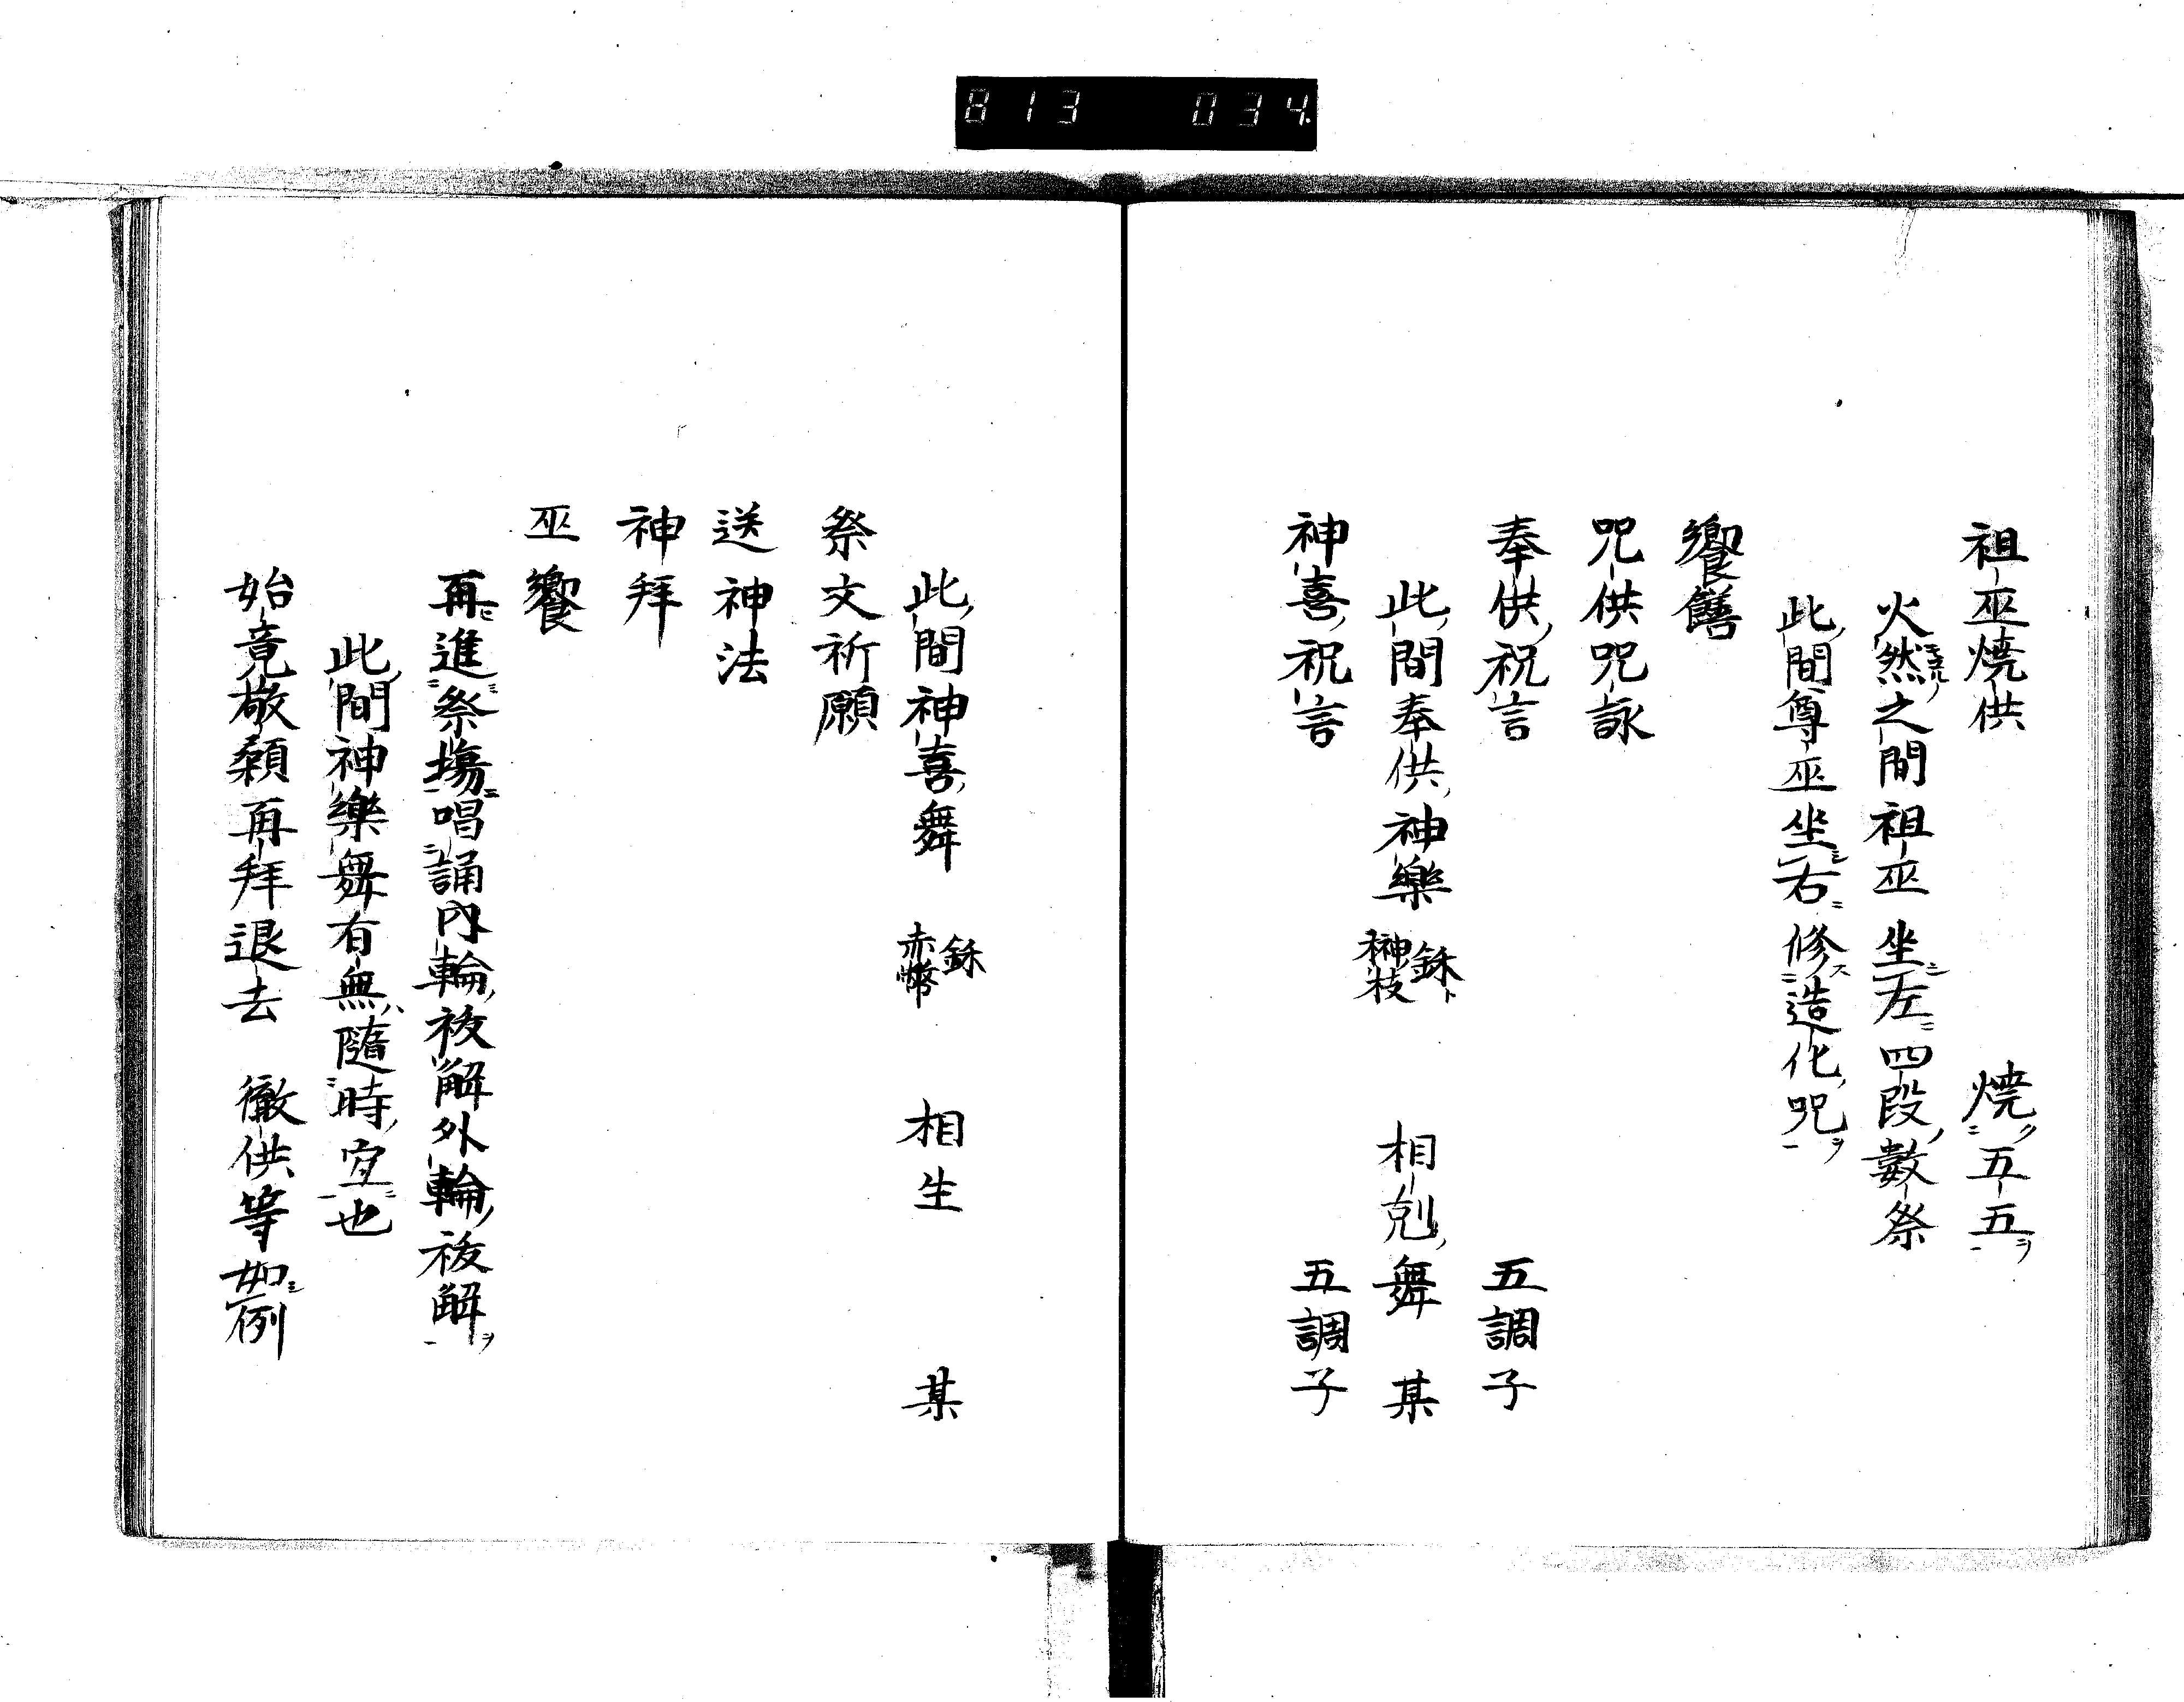 813 034
祖巫焼供 焼五五
火然之間祖巫坐左四段數祭
此間尊巫坐右修造化咒
饗饍
咒供咒詠
奉供祝言 五調子
此間奉供神樂 鉌榊枝 相剋舞 某
神喜祝言 五調子
此間神喜舞 鉌赤幣 相生 某
祭文祈願
送神法
神拜
巫饗
再進祭塲唱誦內輪祓解外輪祓解
此間神樂舞有無隨時宜也
始竟敬顙再拜退去 徹供等如例